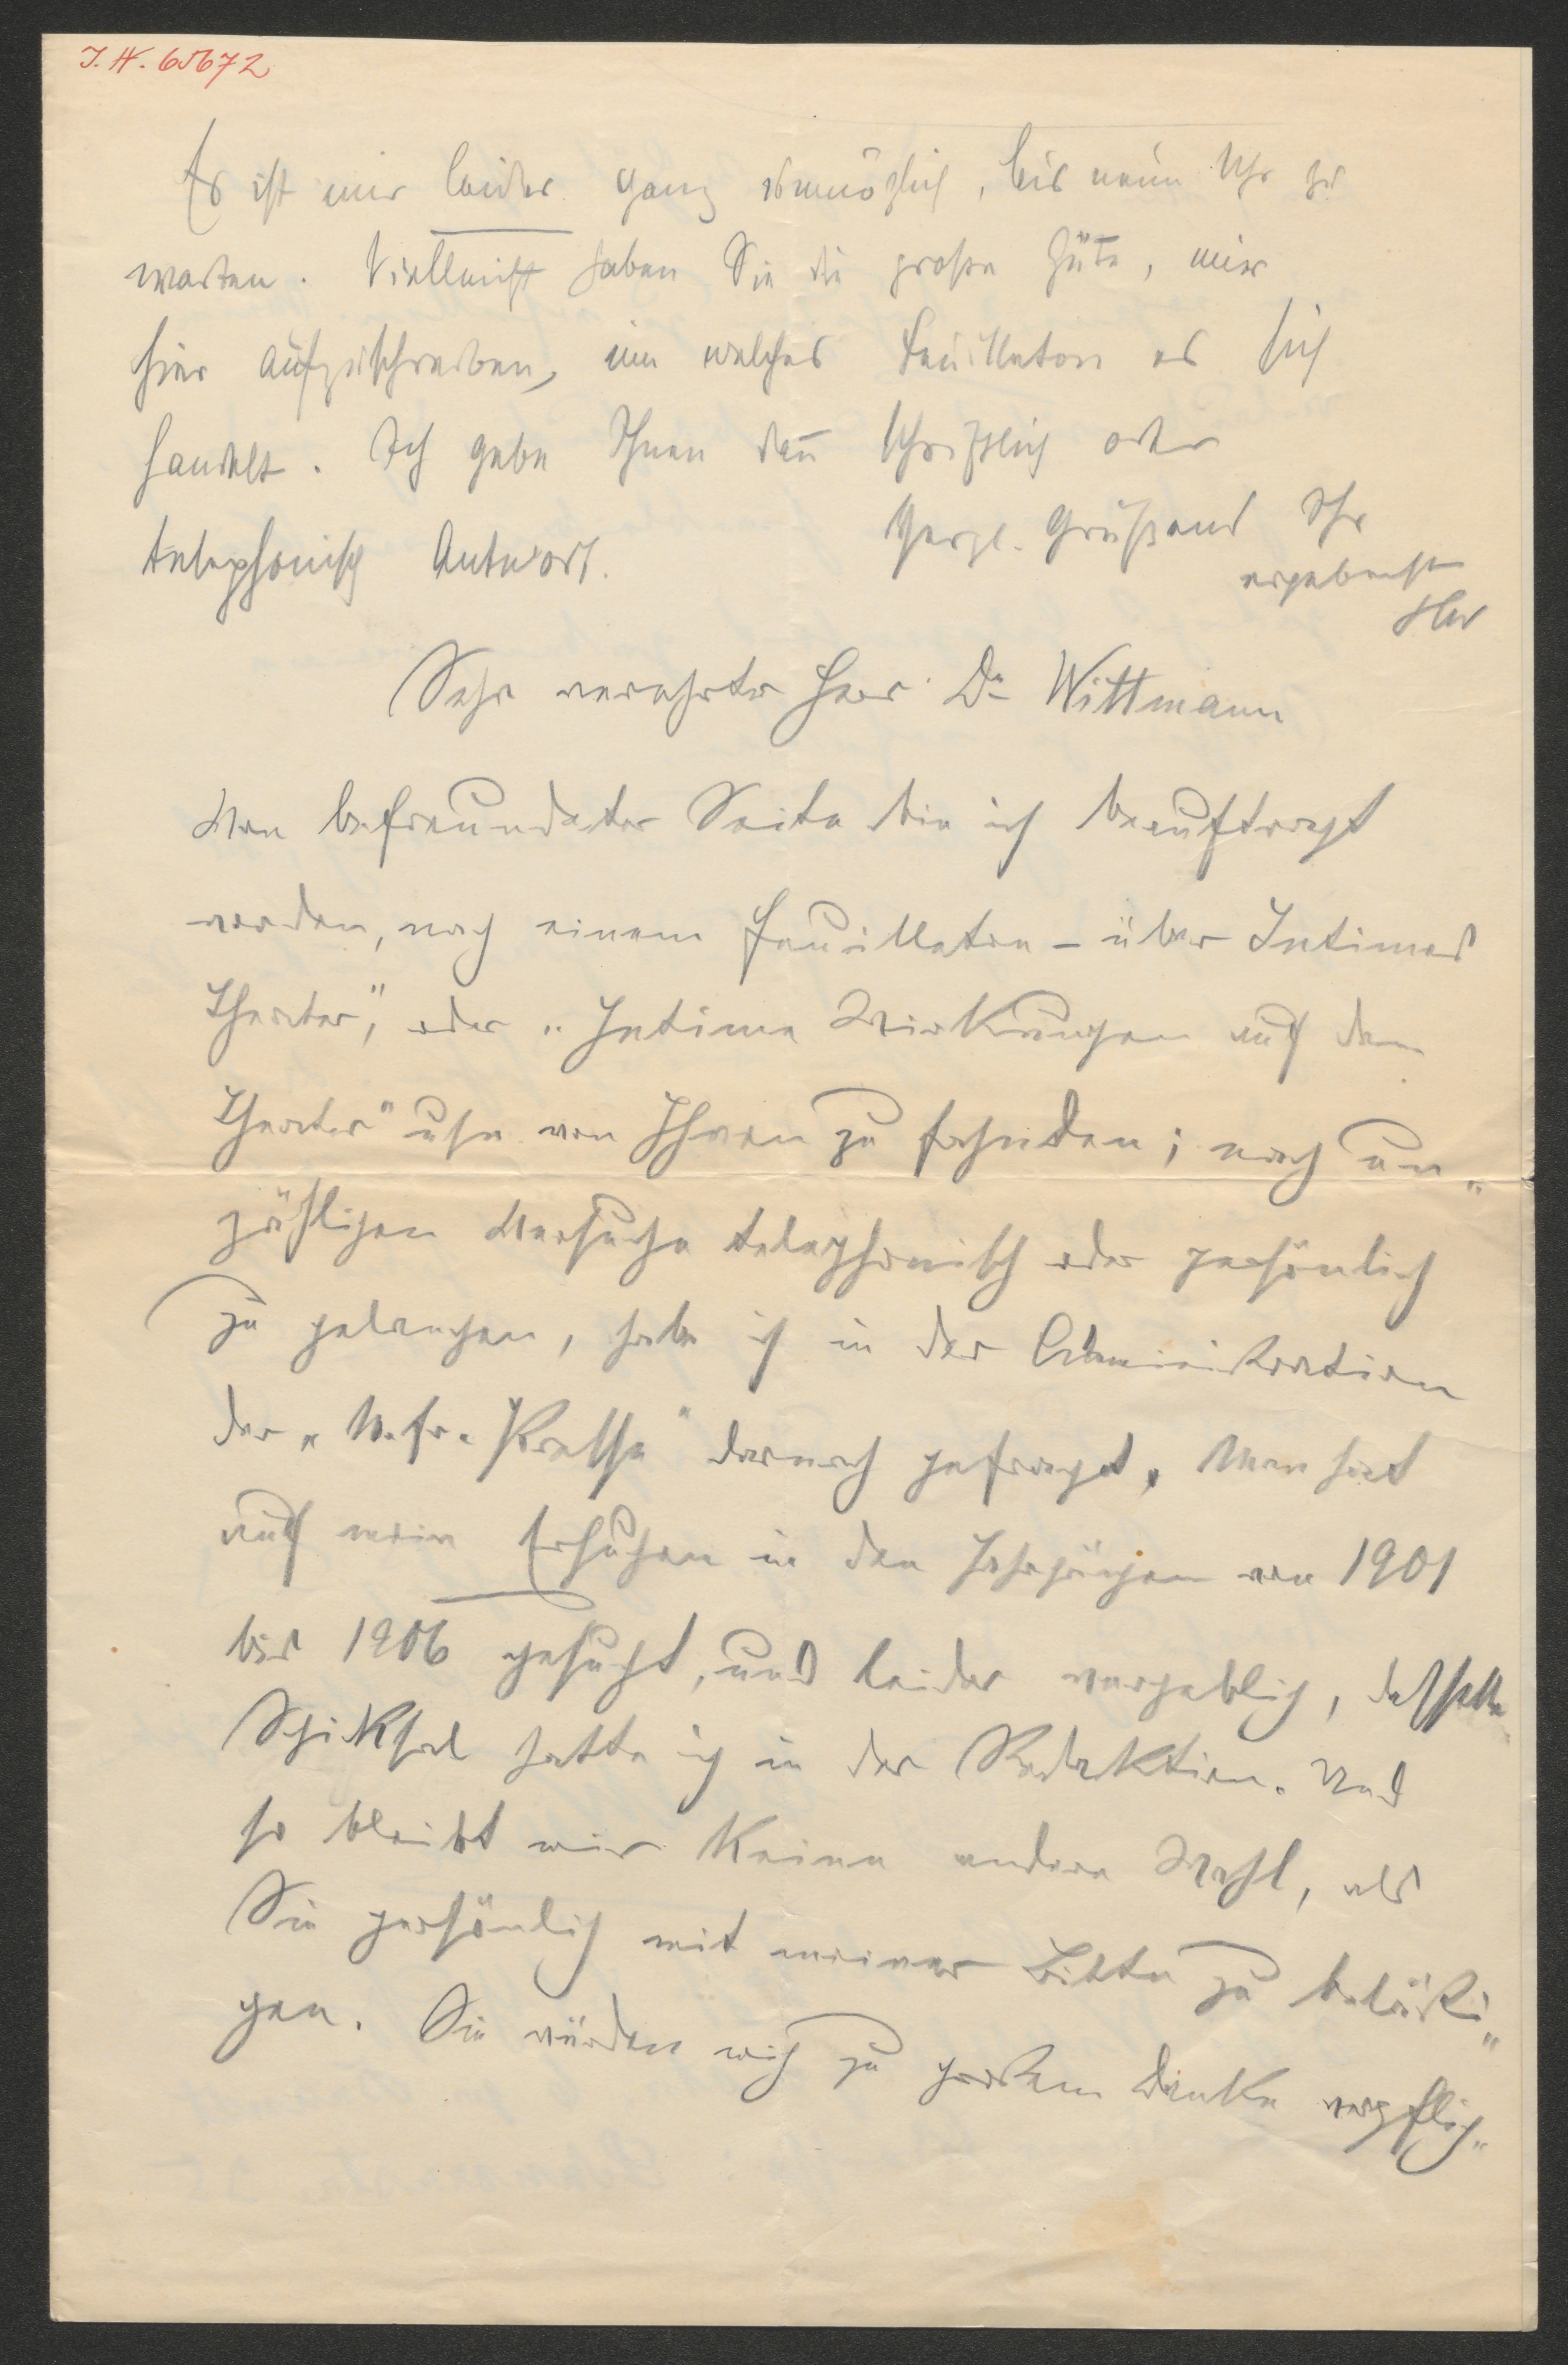 J. N. 65672
Es ist mir leider ganz unmöglich, bis neun Uhr zu
warten. Vielleicht haben Sie die große Güte, mir
hier aufzuschreiben, um welches Feuilleton es sich
handelt. Ich gebe Ihnen dan̄ schriftlich oder
telephonisch Antwort.
Herzl. Grüßend Ihr
ergebenster
Sehr verehrter Herr Dr Wittmann
Von befreundeter Seite bin ich beauftragt
worden, nach einem Feuilleton – über Intimes
Theater", oder „Intime Wirkungen auf dem
Theater" von Ihnen zu fahnden; nach un„
zähligen Versuche telephonisch oder persönlich
zu gelangen, habe ich in der Administration
der „N. fr. Presse" darnach gefragt, Man hat
auf mein Ersuchen in den Jahrgängen von 1901
bis 1906 gesucht, und leider vergeblich, dasselbe
Schiksal hatte ich in der Redaktion. Und
so bleibt mir keine andere Wahl, als
Sie persönlich mit meiner Bitte zu belästi„
gen. Sie würden mich zu großem Danke verpflich„